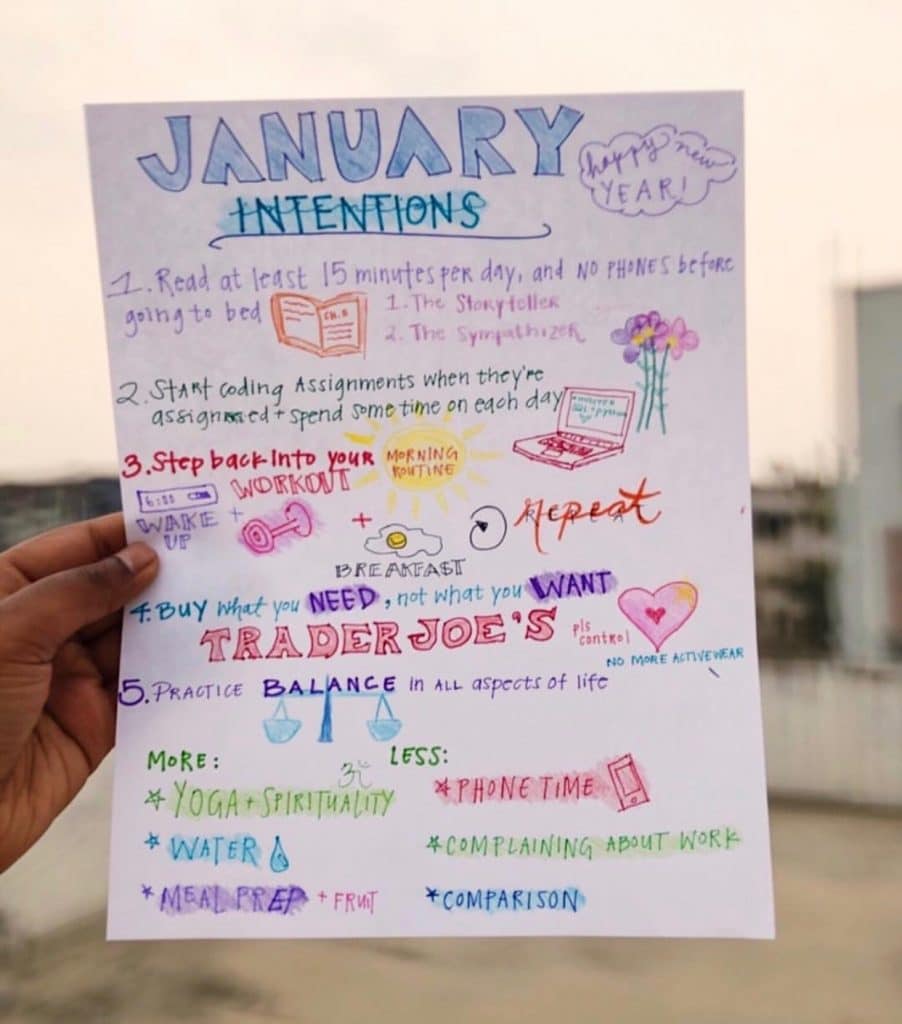 JANUARY
happy new
YEAR!
INTENTIONS
1. Read at least 15 minutes per day, and NO PHONES before
going to bed
CH. 8
1. The Storyteller
2. The Sympathizer
2. START coding Assignments when they're
assigned + spend some time on each day
3. Step back into your
MORNING
ROUTINE
WORKOUT
WAKE +
UP
+
BREAKFAST
Repeat
4. BUY what you NEED, not what you WANT
TRADER JOE'S
pls
control
NO MORE ACTIVEWEAR
5. PRACTICE BALANCE in ALL aspects of life
MORE:
LESS:
* YOGA + SPIRITUALITY
* PHONE TIME
* WATER
* COMPLAINING ABOUT WORK
* MEAL PREP + FRUIT
* COMPARISON